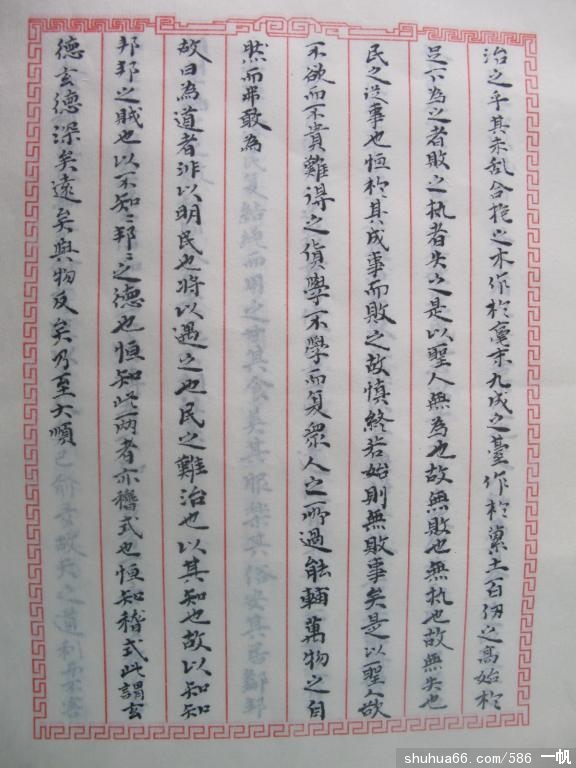 治之乎其未乱合抱之木作於毫末九成之臺作於蔂土百仞之高始於
足下為之者敗之执者失之是以聖人無為也故無敗也無执也故無失也
民之從事也恒於其成事而敗之故慎終若始則無敗事矣是以聖人欲
不欲而不貴難得之貨學不學而复衆人之所過能輔萬物之自
然而弗敢為
故曰為道者非以明民也將以愚之也民之難治也以其知也故以知知
邦邦之賊也以不知〻邦〻之德也恒知此兩者亦稽式也恒知稽式此謂玄
德玄德深矣遠矣與物反矣乃至大順
shuhua66.com/586 一帆